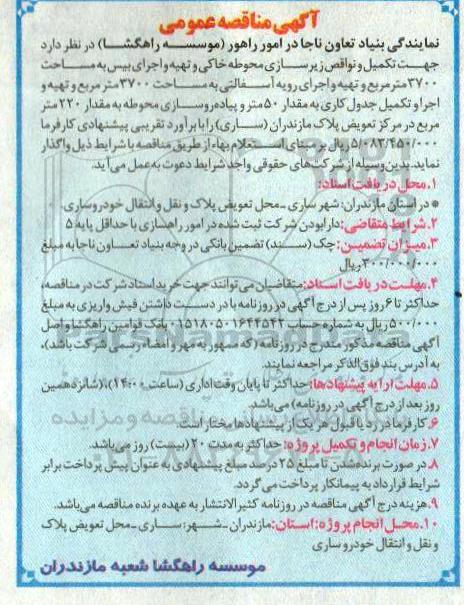 آگهی مناقصه عمومی
نمایندگی بنیاد تعاون ناجا در امور راهور (موسسه راهگشا) در نظر دارد
جهت تکمیل و نواقص زیرسازی محوطه خاکی و تهیه و اجرای بیس به مساحت
۳۷۰۰ متر مربع و تهیه و اجرای رویه آسفالتی به مساحت ۳۷۰۰ متر مربع و تهیه و
اجرا و تکمیل جدول کاری به مقدار ۵۰ متر و پیاده روسازی محوطه به مقدار ۲۲۰ متر
مربع در مرکز تعویض پلاک مازندران (ساری) را با برآورد تقریبی پیشنهادی کارفرما
۵/۰۸۲/۴۵۰/۰۰۰ ریال بر مبنای استعلام بهاء از طریق مناقصه با شرایط ذیل واگذار
نماید. بدین وسیله از شرکت‌های حقوقی واجد شرایط دعوت به عمل می آید.
۱. محل دریافت اسناد:
* در استان مازندران: شهر ساری - محل تعویض پلاک و نقل و انتقال خودرو ساری.
۲. شرایط متقاضی: دارا بودن شرکت ثبت شده در امور راهسازی با حداقل پایه ۵
۳. میزان تضمین: چک (سند) تضمین بانکی در وجه بنیاد تعاون ناجا به مبلغ
۳۰۰/۰۰۰/۰۰۰ ریال
۴. مهلت دریافت اسناد: متقاضیان می توانند جهت خرید اسناد شرکت در مناقصه،
حداکثر تا ۶ روز پس از درج آگهی در روزنامه با در دست داشتن فیش واریزی به مبلغ
۵۰۰/۰۰۰ ریال به شماره حساب ۰۱۵۱۸۰۵۰۱۶۴۴۵۴۲ بانک قوامین راهگشا و اصل
آگهی مناقصه مذکور مندرج در روزنامه (که ممهور به مهر و امضاء رسمی شرکت باشد)،
به آدرس بند فوق الذکر مراجعه نمایند.
۵. مهلت ارایه پیشنهادها: حداکثر تا پایان وقت اداری (ساعت ۱۴:۰۰)، (شانزدهمین
روز بعد از درج آگهی در روزنامه) می باشد.
۶. کارفرما در رد یا قبول هر یک از پیشنهادها مختار است
۷. زمان انجام و تکمیل پروژه: حداکثر به مدت ۲۰ (بیست) روز می باشد.
۸. در صورت برنده شدن تا مبلغ ۲۵ درصد مبلغ پیشنهادی به عنوان پیش پرداخت برابر
شرایط قرارداد به پیمانکار پرداخت می گردد.
۹. هزینه درج آگهی مناقصه در روزنامه کثیر الانتشار به عهده برنده مناقصه می باشد.
۱۰. محل انجام پروژه: استان: مازندران - شهر: ساری - محل تعویض پلاک
و نقل و انتقال خودرو ساری
موسسه راهگشا شعبه مازندران